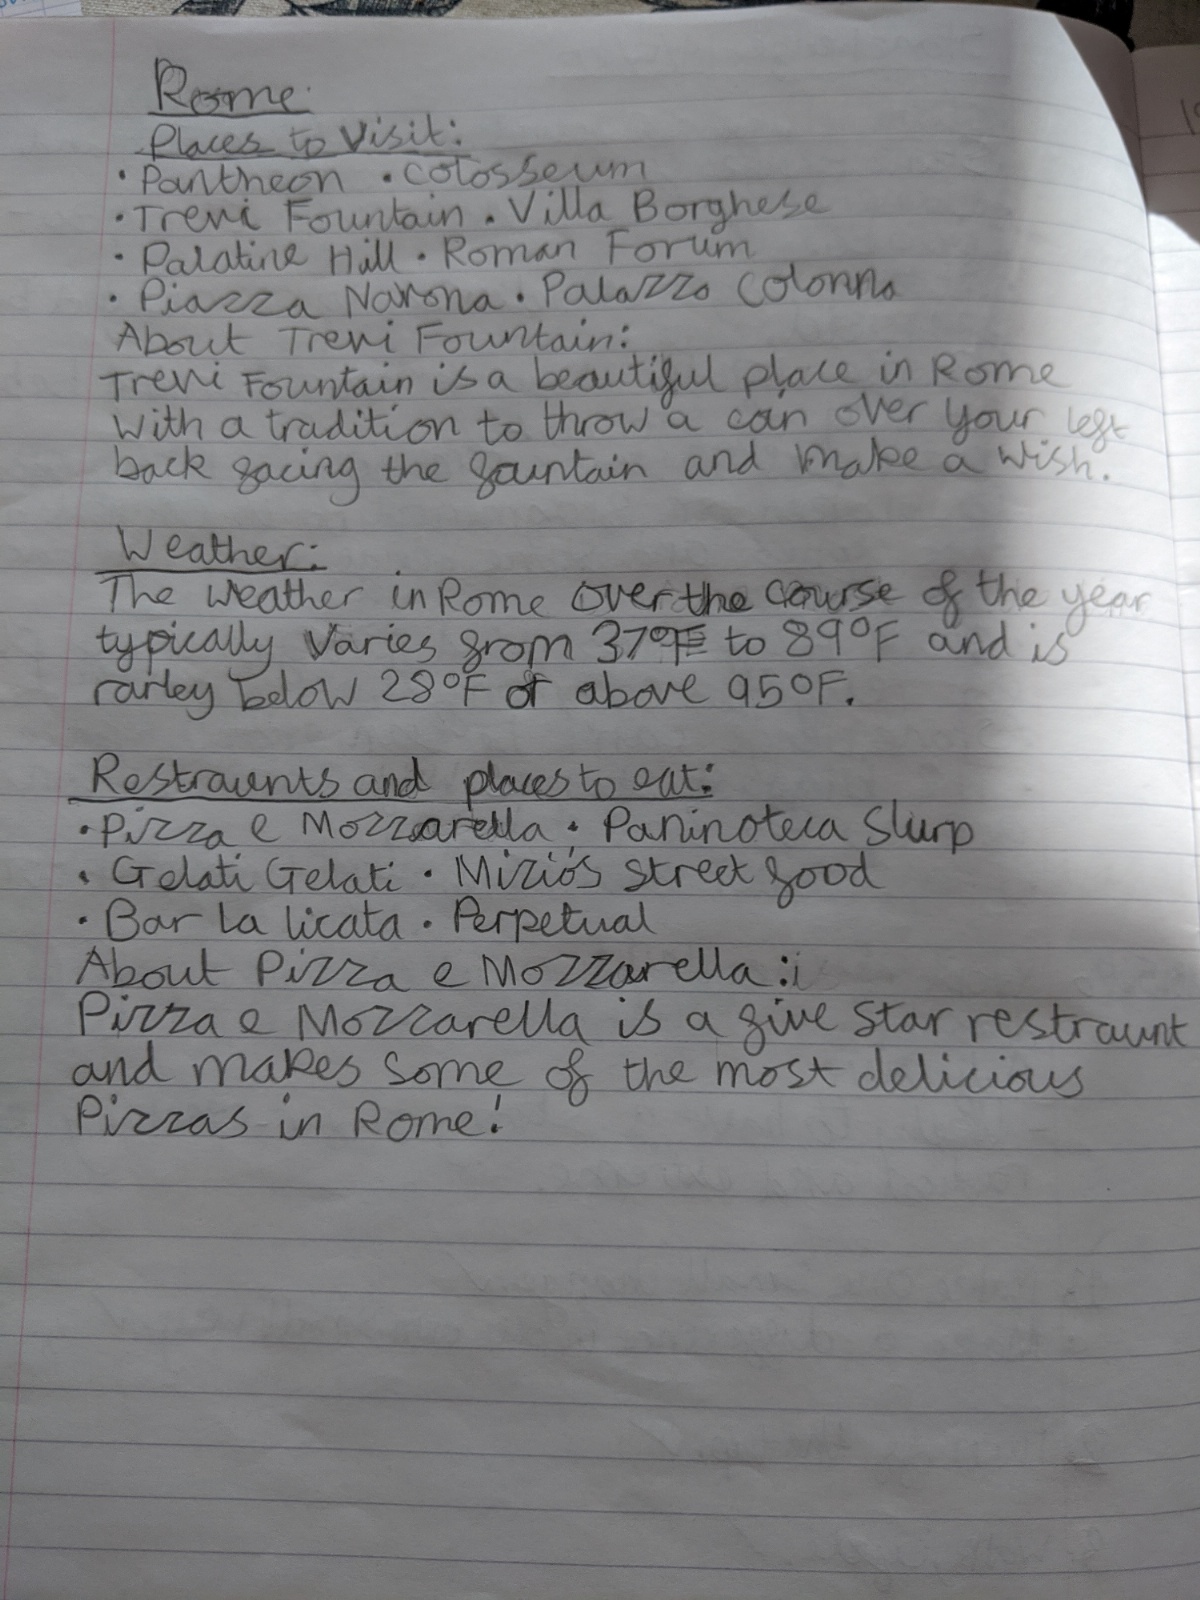 Rome
Places to Visit:
• Pantheon • Colosseum
• Trevi Fountain • Villa Borghese
• Palatine Hill • Roman Forum
• Piazza Navona • Palazzo Colonna
About Trevi Fountain:
Trevi Fountain is a beautiful place in Rome
with a tradition to throw a coin over your left
back facing the fountain and make a wish.
Weather:
The weather in Rome over the course of the year
typically varies from 37°F to 89°F and is
rarley below 28°F or above 95°F.
Restraunts and places to eat:
• Pizza e Mozzarella • Paninoteca Slurp
• Gelati Gelati • Mizio's street food
• Bar La licata • Perpetual
About Pizza e Mozzarella :
Pizza e Mozzarella is a five star restraunt
and makes some of the most delicious
Pizzas in Rome!